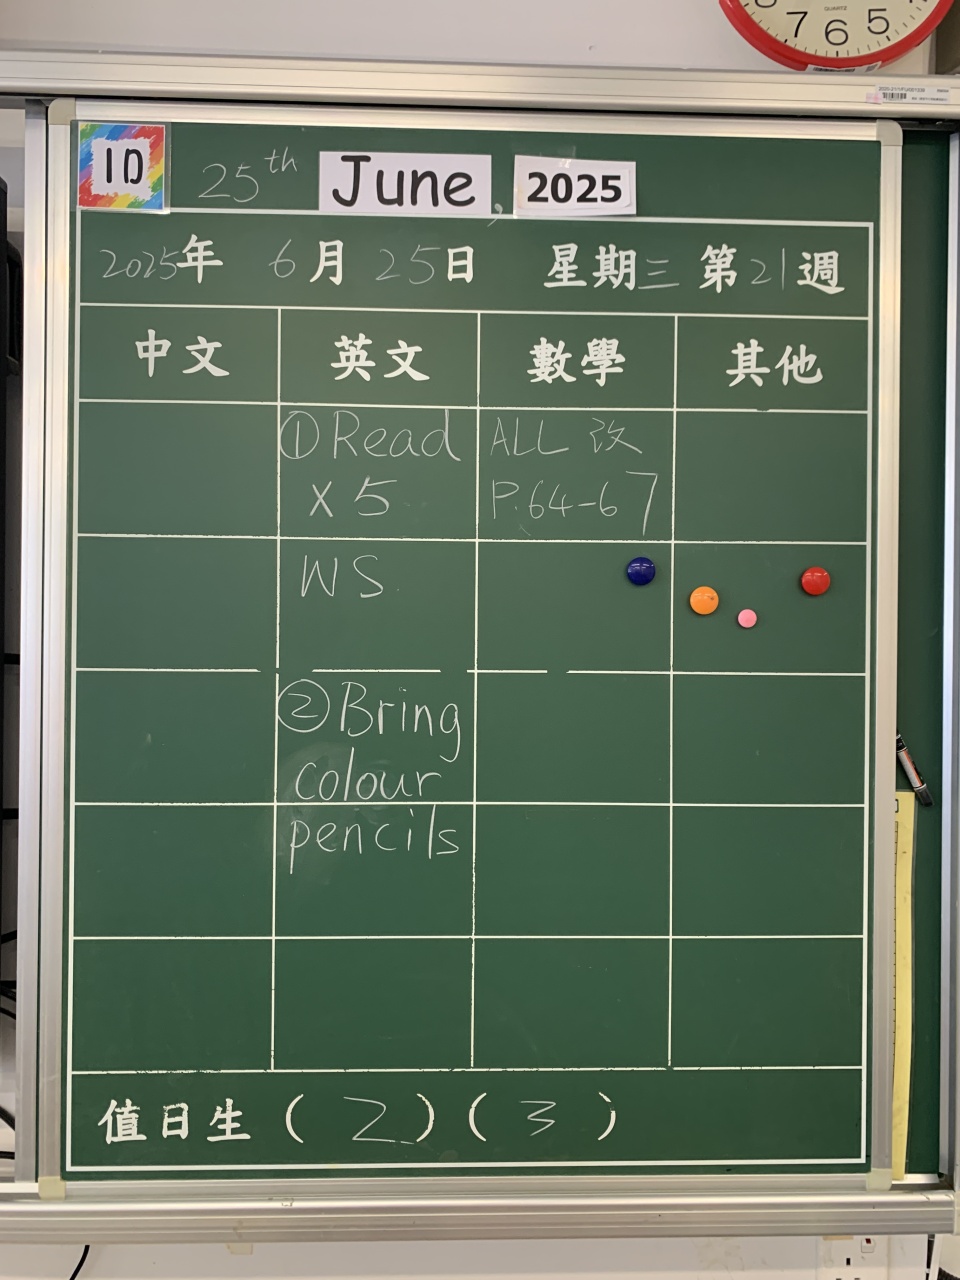 QUARTZ
7 6 5
1D
25th June, 2025
2025年 6月 25日 星期三 第21週
中文 英文 數學 其他
① Read
X 5
WS
② Bring
colour
pencils
ALL 改
P.64-67
值日生 ( 2 ) ( 3 )